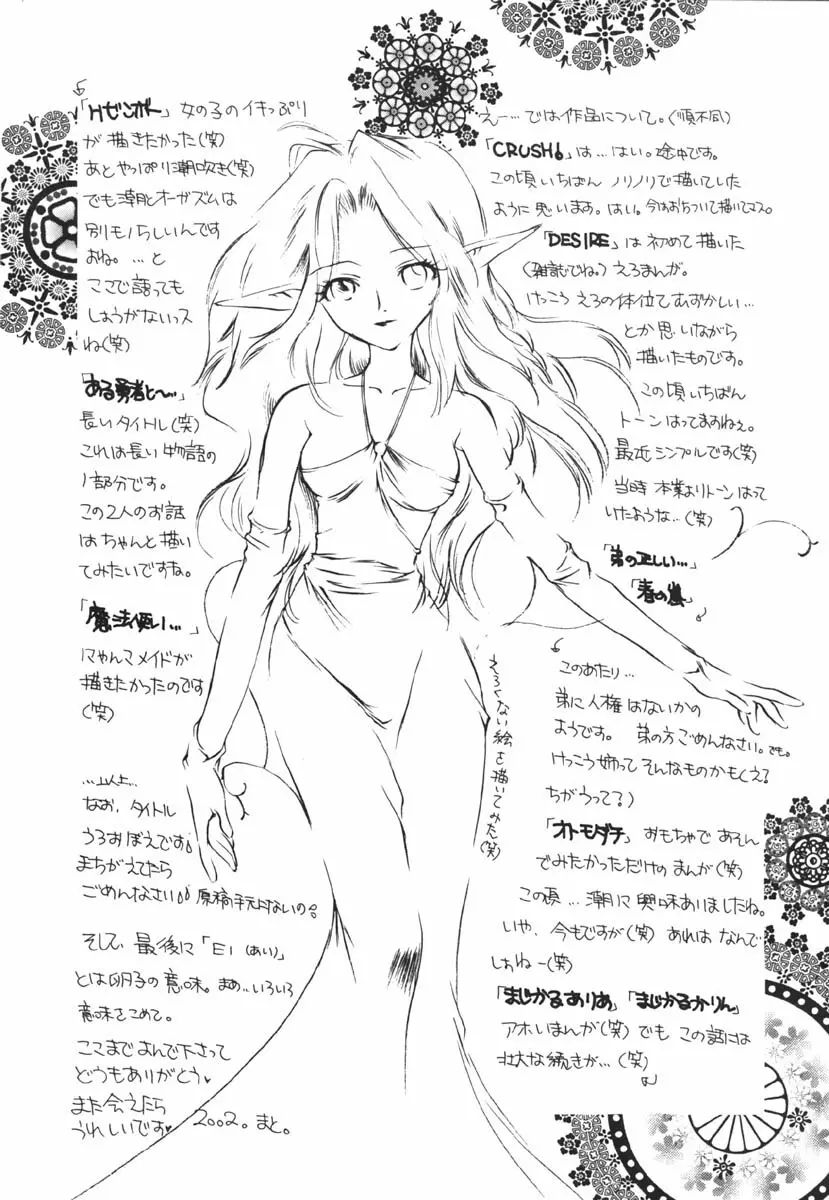 えー…では作品について。(順不同)
「CRUSH!」は…はい。途中です。
この頃いちばん ノリノリで描いていた
ように思います。はい。今はおちついて描いてマス。
「DESIRE」は初めて描いた
(雑誌でね。)えろまんが。
けっこう えろの体位てむずかしい…
とか思いながら
描いたものです。
この頃いちばん
トーンはってますねぇ。
最近シンプルです(笑)
当時 本業よりトーンはって
いたような…(笑)
「弟の正しい…」
「春の嵐」
このあたり…
弟に人権はないかの
ようです。弟の方ごめんなさい。でも。
けっこう姉ってそんなものかも(え?
ちがうって?)
「オトモダチ」おもちゃであそん
でみたかっただけのまんが(笑)
この頃…潮に興味ありましたね。
いや、今もですが(笑)あれは なんで
しょねー(笑)
「まじかるありあ」「まじかるかりん」
アホいまんが(笑)でも この話には
壮大な続きが…(笑)
「Hゼンボー」女の子のイキっぷり
が描きたかった(笑)
あとやっぱり潮吹き(笑)
でも潮とオーガズムは
別モノらしいんです
よね。…と
ここで語っても
しょうがないっス
ね(笑)
「ある勇者と〜…」
長いタイトル(笑)
これは長い物語の
1部分です。
この2人のお話
はちゃんと描い
てみたいですね。
「魔法使い…」
にゃんこメイドが
描きたかったのです
(笑)
…以上…
なお、タイトル
うろおぼえです。
まちがえてたら
ごめんなさい。原稿手元にないの。
そして、最後に「EI(あい)」
とは卵子の意味。まぁ…いろいろ
意味をこめて。
ここまでよんで下さって
どうもありがとう♥
また会えたら
うれしいです♥ 2002。まと。
えろくない絵を描いてみた(笑)